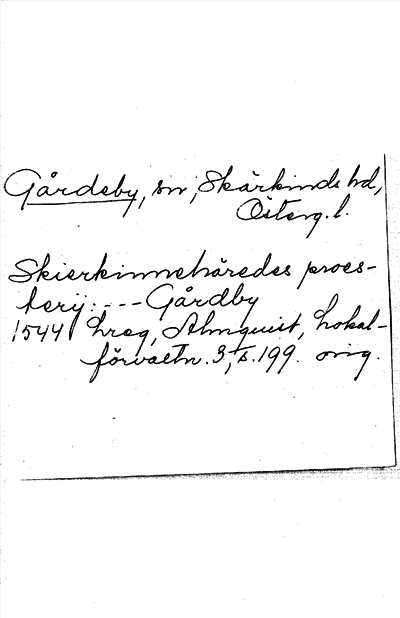 Gårdeby, sn, Skärkinds hd,
Österg.l.
Skierkinnehäredes proes-
terij:---Gårdby
1544 hreg, Almquist, Lokal-
förvaltn. 3, s. 199. orig.